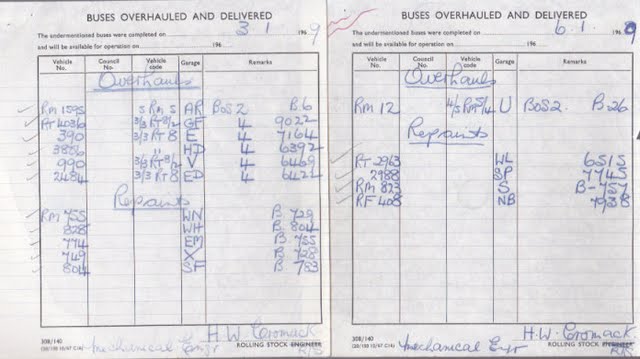 BUSES OVERHAULED AND DELIVERED
The undermentioned buses were completed on 3.1 196 9
and will be available for operation on 196
Vehicle No. Council No. Vehicle code Garage Remarks
Overhauls
RM 1595 5 RM 5 AR BOS 2 B.6
RT 4036 3/3 RT 8/2 GF 4 9022
390 3/3 RT 8 E 4 7164
3886 " HD 4 6392
990 3/3 RT 8/2 V 4 6469
2484 3/3 RT 8 ED 4 6421
Repaints
RM 755 WN B. 729
828 WH B. 804
774 EM B. 755
749 X B. 728
804 SF B 783
H.W. Cromack
308/140
ROLLING STOCK ENGINEER
mechanical Engr
BUSES OVERHAULED AND DELIVERED
The undermentioned buses were completed on 6.1 196 9
and will be available for operation on 196
Vehicle No. Council No. Vehicle code Garage Remarks
Overhauls
RM 12 U BOS 2. B.26
Repaints
RT 2963 WL 6515
2988 SP 7745
RM 823 S B-757
RF 408 NB 7938
H.W. Cromack
308/140
ROLLING STOCK ENGINEER
mechanical Engr